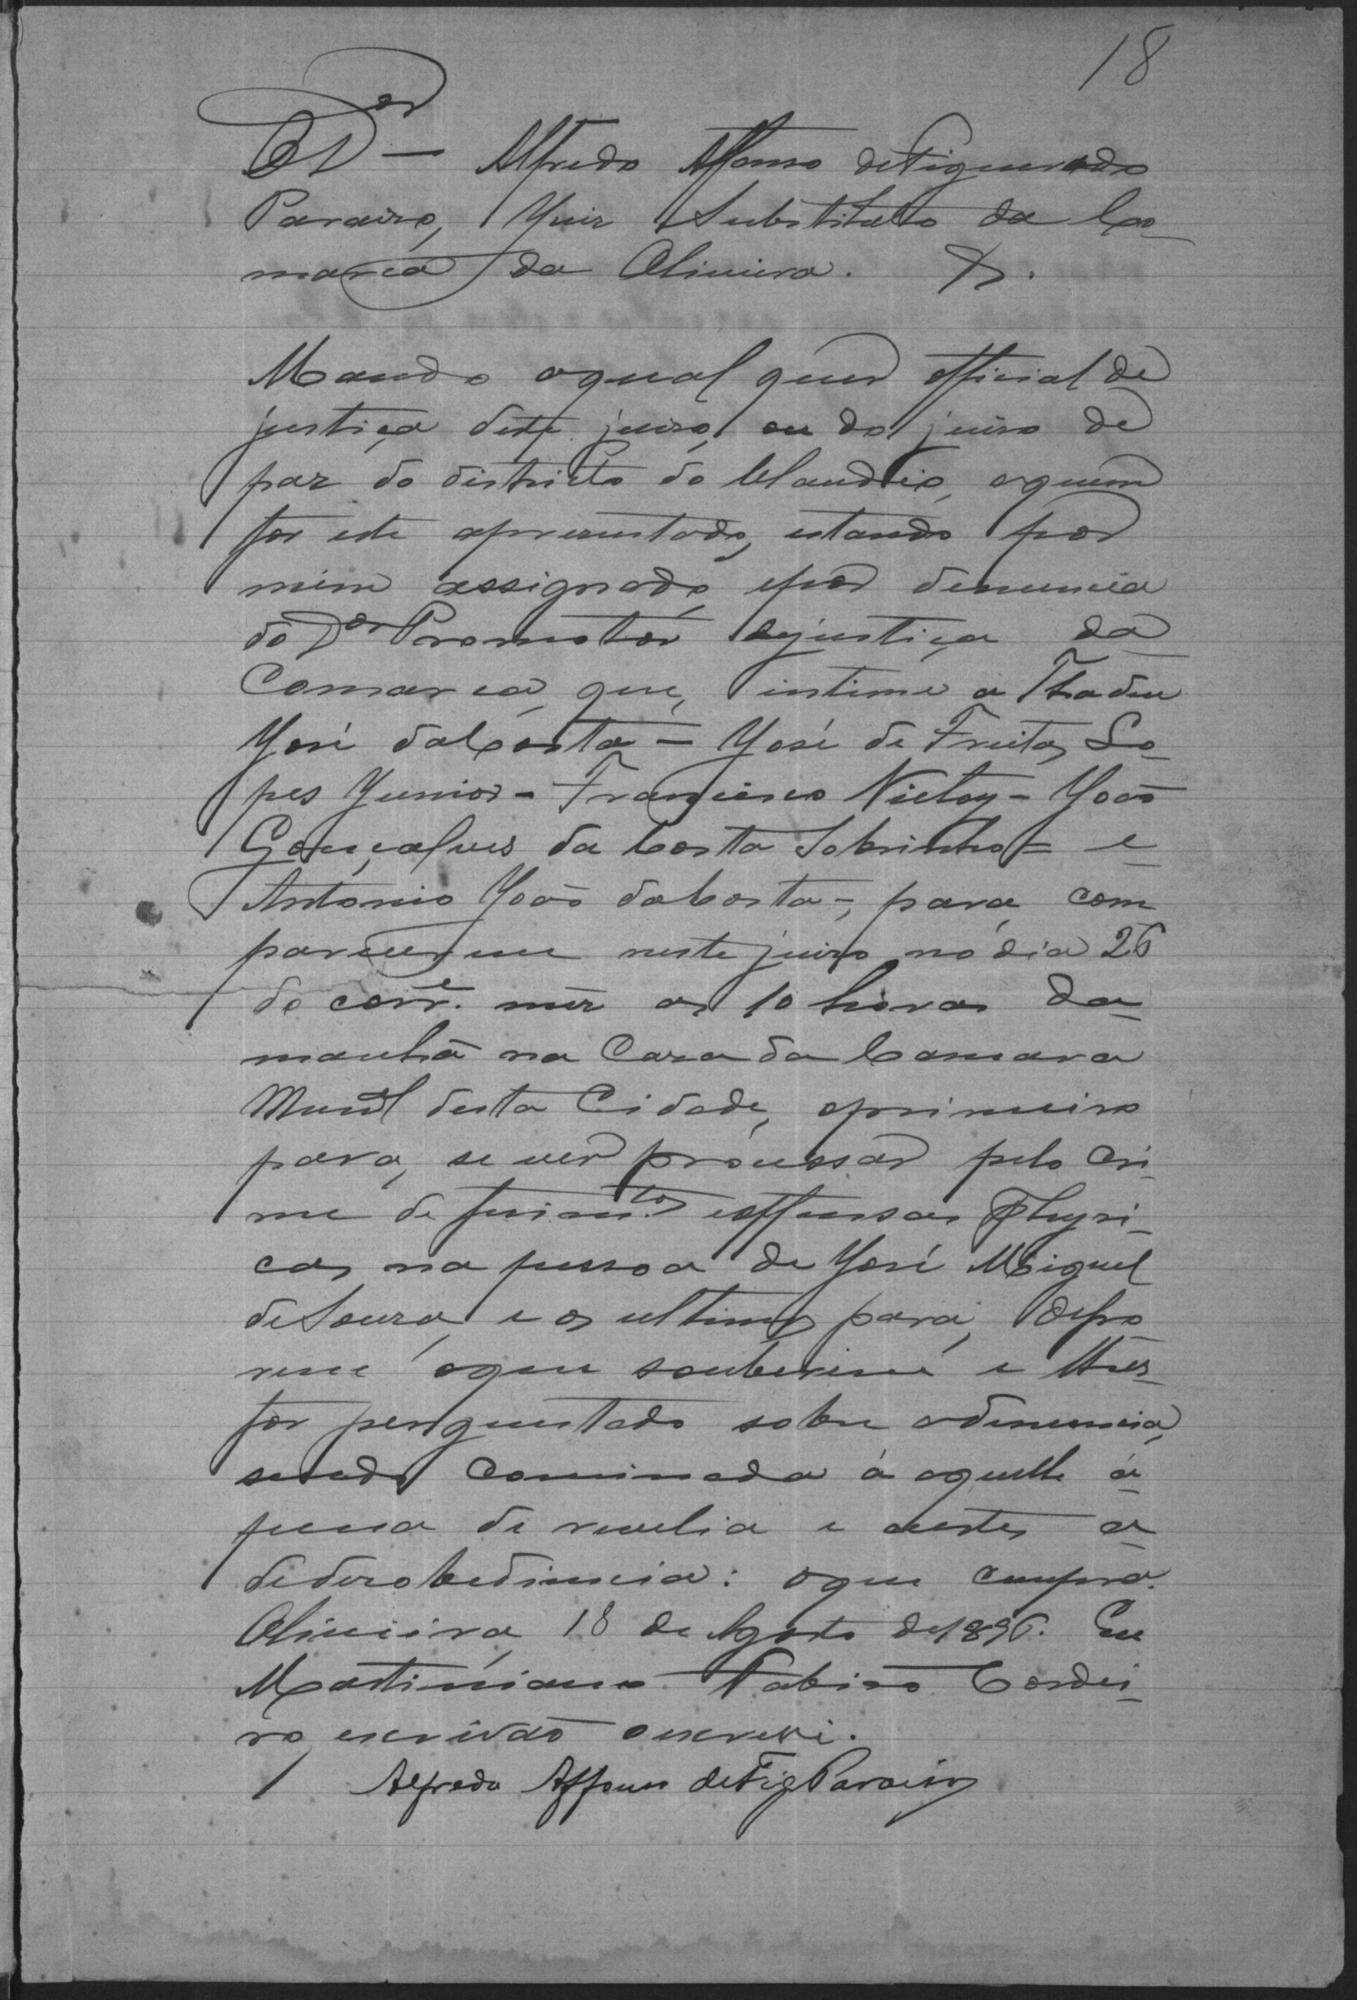 18
O Dor — Alfredo Affonso de Figueredo
Paraiso, Juiz Substituto da Co-
marca da Oliveira.
Mando aqual quer official de
justiça deste juiso, ou do juiso de
paz do districto do Claudio, aquem
for este apresentado, estando por
mim assignado, e por denuncia
do Dor Promotor dejustiça da
Comarca, que, intime a Thadeu
José daCosta — José de Freitas Lo-
pes Junior — Francisco Nicloy — João
Gonçalves da Costa Sobrinho — e
Antonio João daCosta —, para, com
parecerem neste juiso no dia 26
do corre. mez as 10 horas da
manhã na Caza da Camara
Munal desta Cidade, oprimeiro
para, se ver processar pelo cri-
me de ferimtos e offensas Phyzi-
cas, na pessoa de José Miguel
deSouza, e os ultimos para, depo
rem oque souberem e lhes
for perguntado sobre adenuncia,
sendo cominada á aquelle a
pena de revelia e aestes a
dedezobediencia: oque cumpra.
Oliveira, 18 de Agosto de1896. Eu
Martiniano Nabiso Cordei-
ro, escrivão oescrevi.
Alfredo Affonso deFig Paraiso